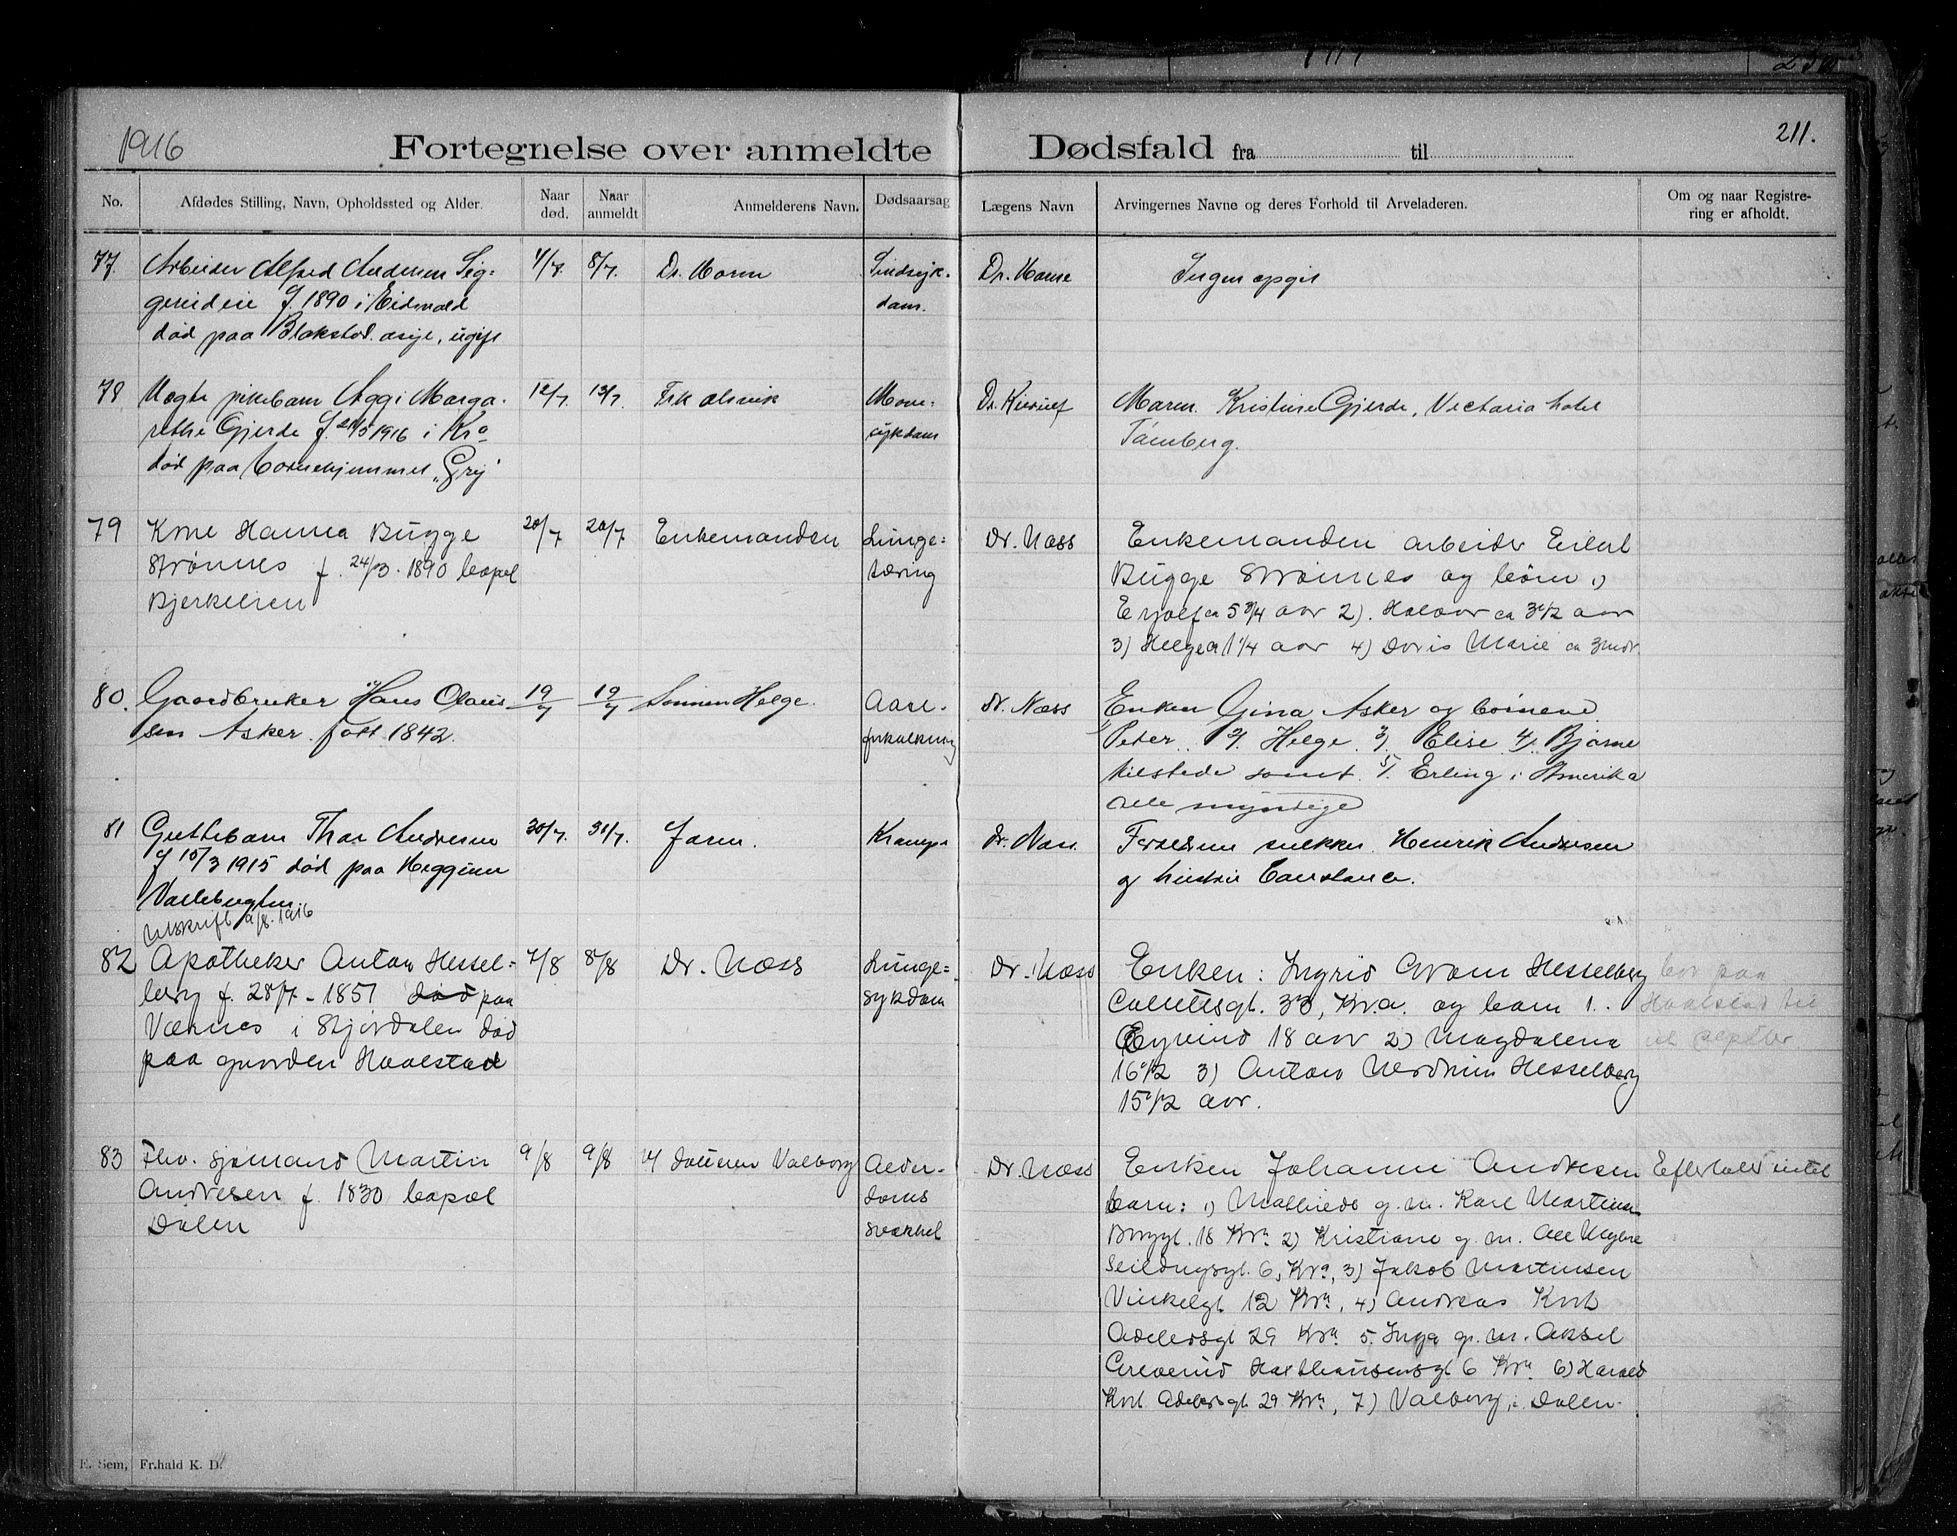 1916
Fortegnelse over anmeldte Dødsfald fra til
211.
No.
Afdødes Stilling, Navn, Opholdssted og Alder.
Naar død.
Naar anmeldt
Anmelderens Navn.
Dødsaarsag
Lægens Navn
Arvingernes Navne og deres Forhold til Arveladeren.
Om og naar Registre-
ring er afholdt.
77. Arbeider Alfred Andersen Sig-
f 1890 i Eidsvold
død paa Blakstad asyl, ugift
8/7.
Sindsyk-
dom.
Ingen opgit
78 Uegte pikebarn Aggi Marga-
rethe Gjerde f. 1916 i Kra
død paa barnehjemmet "Gry"
12/7. 13/7.
Mave-
sykdom
Dr. Kierulf
Moren. Kristine Gjerde, Victoria hotel
Tønsberg.
79 Kone Hanna Bugge
Strømnes f. 24/3. 1890 bopæl
Bjerkelien
20/7 20/7 Enkemanden
Lunge=
tæring
Dr. Næss
Enkemanden arbeider Eilert
Bugge Strømnes og børn 1)
Eyolf ca 5 3/4 aar 2). Halvor ca 3 1/2 aar
3) Helge ca 1 1/4 aar 4) Doris Marie ca 3 mdr
80. Gaardbruker Hans Olaus
sen Asker. født 1842.
19/7 19/7 Sønnen Helge.
Aare-
forkalkning
dr. Næss
Enken Gina Asker og børnene
1/ Peter 2/. Helge. 3/ Elise 4/. Bjarne
tilstede samt. 5/. Erling i Amerika
alle myndige
81 Guttebarn Thor Andresen
f 15/3 1915 død paa Heggnen
30/7. 31/7. Faren.
Krampe
dr. Næss.
Forældrene snekker Henrik Andresen
og hustru Constance.
Utskrift 9/8. 1916
82 Apotheker Anton Hessel=
berg f. 28/7 - 1851 død paa
Værnes i Stjørdalen død
paa gaarden Hvalstad
7/8 8/8 Dr. Næss
Lunge=
sykdom
Dr. Næss
Enken: Ingrid Gram Hesselberg
Colletsgt. 33, Kr.a. og barn 1.
Eyvind 18 aar 2) Magdalena
16 1/2 3) Anton Hesselberg
15 1/2 aar.
bor paa
Hvalstad til
83 Fhv. sjømand Martin
Andresen f. 1830 bopæl
Dalen
9/8 9/8 v/ datteren Valborg
Alder-
doms
svækkel
Dr. Næss
Enken Johanne Andresen
barn: 1) Mathilde g. m. Karl Martinsen
Borggt. 18 Kra 2) Kristiane g. m. Ole Myhre
Seildugsgt. 6, Kra, 3) Jakob Martinsen
Vinkelgt 12 Kra, 4) Andreas Kort
Adelersgt 29 Kra 5. Inga g. m. Aksel
Haxthausensgt 6 Kra 6) Harald
Kort Adelersgt 29 Kra, 7) Valborg, Dalen.
Efterlater intet
E. Sem, Fr.hald K. D.